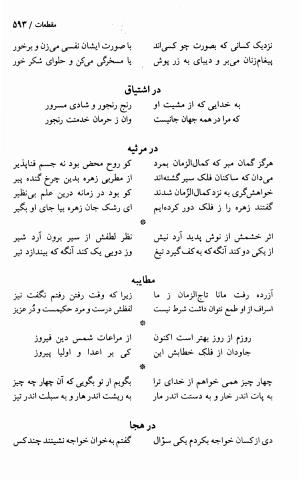 مقطعات / ۵۹۳
نزدیک کسانی که بصورت چو کسی‌اند با صورت ایشان نفسی می‌زن و برخور
پیغام‌زنان می‌بر و دیبای به زر پوش یا مسخرگی می‌کن و حلوای شکر خور
در اشتیاق
به خدایی که از مشیت او رنج رنجور و شادی مسرور
که مرا در همه جهان جانیست وان ز حرمان خدمتت رنجور
در مرثیه
هرگز گمان مبر که کمال‌الزمان بمرد کو روح محض بود نه جسم فناپذیر
می‌دان که ساکنان فلک سیر گشته‌اند از مطربی زهره بدین چرخ گنده پیر
خواهش‌گری به نزد کمال‌الزمان شدند کو بود در زمانه درین علم بی‌نظیر
گفتند زهره را ز فلک دور کرده‌ایم ای رشک جان زهره بیا جای او بگیر
*
اثر خشمش از نوش پدید آرد نیش نظر لطفش از سیر برون آرد شیر
از یکی دو کند آنگه که به کف گیرد تیغ وز دویی یک کند آنگه که بیندازد تیر
مطایبه
آزرده رفت مانا تاج‌الزمان ز ما زیرا که وقت رفتن رفتم نگفت نیز
اسراف از او طمع نتوان داشت شرط نیست لفظش درست و مرد حکیمست و در عزیز
*
روزم از روز بهتر است اکنون از مراعات شمس دین فیروز
جاودان از فلک خطابش این کی بر اعدا و اولیا پیروز
*
چهار چیز همی خواهم از خدای ترا بگویم ار تو بگویی که آن چهار چه چیز
به پات اندر خار و به دستت اندر مار به ریشت اندر هار و به سبلت اندر تیز
در هجا
دی از کسان خواجه بکردم یکی سؤال گفتم به‌خوان خواجه نشینند چندکس